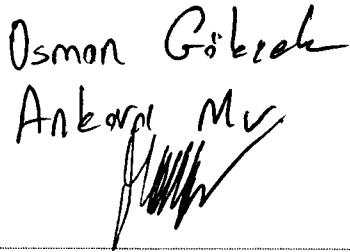 Osman Gökçek
Ankara Mv